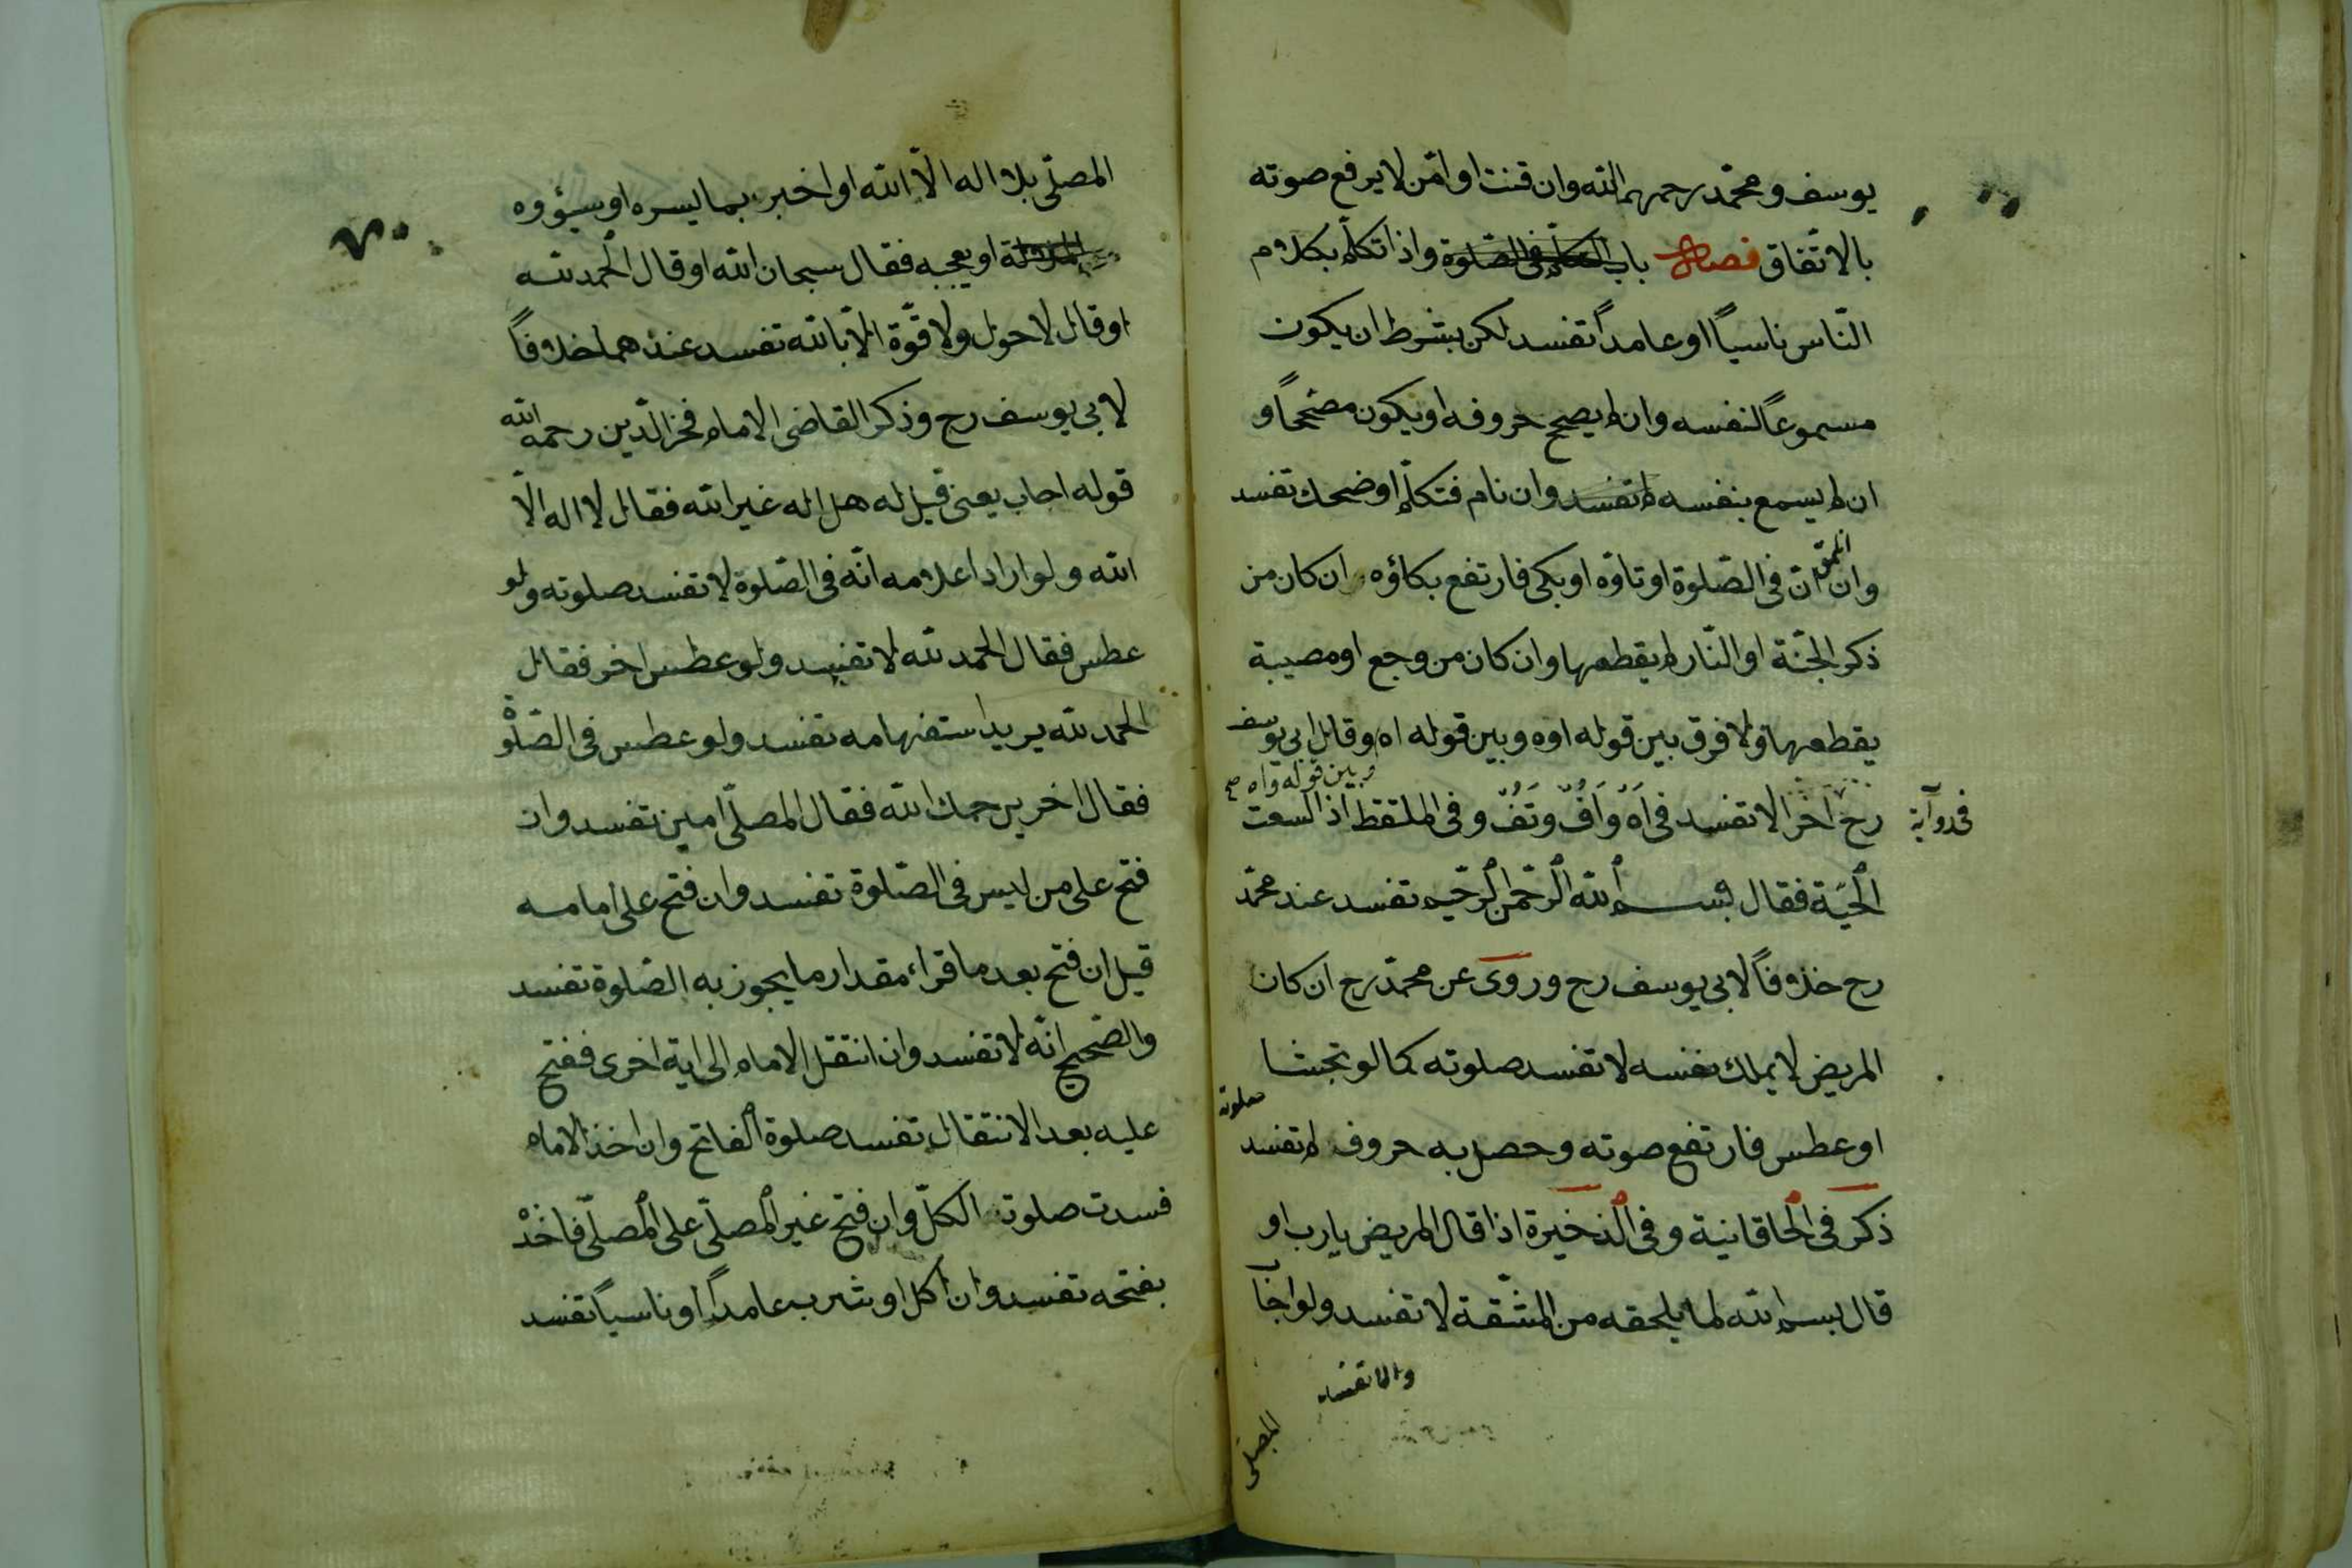 يوسف ومحمّد رحمهم الله وان قنت او امّن لا يرفع صوته
بالاتّفاق فصل باب التكلّم فى الصّلوة واذا تكلّم بكلام
النّاس ناسياً او عامداً تفسد لكن بشرط ان يكون
مسموعاً لنفسه وان لم يصح حروفه او يكون مصححاً و
ان لم يسمع بنفسه لم تفسد وان نام فتكلّم او ضحك تفسد
وان انّ فى الصّلوة او تاوّه او بكى فارتفع بكاؤه ان كان من
ذكر الجنّة او النّار لم يقطعها وان كان من وجع او مصيبة
يقطعها ولا فرق بين قوله اوه وبين قوله اه وقال ابي يوسف
وبين قوله واه صح
رح اخرا لا تفسد فى اَهْ وَاَفُّ وَتَفُّ وفى الملتقط اذا لسعت
فى رواية
الحيّة فقال بسم الله الرحمن الرحيم تفسد عند محمّد
رح خلافاً لابى يوسف رح وروى عن محمّد رح ان كان
المريض لا يملك نفسه لا تفسد صلوته كما لو تجشا
او عطس فارتفع صوته وحصل به حروف لم تفسد
صلوته
ذكر فى الخاقانية وفى الذخيرة اذا قال المريض يارب او
قال بسم الله لما يلحقه من المشّقة لا تفسد ولو اجاب
والا تفسد
المصلى
المصلّى بلا اله الّا الله او اخبر بما يسره او سيؤوه
او يعجبه فقال سبحان الله او قال الحمد لله
او قال لا حول ولا قوّة الّا بالله تفسد عندهما خلافاً
لابى يوسف رح وذكر القاضى الامام فخر الدّين رحمه الله
قوله اجاب يعنى قيل له هل اله غير الله فقال لا اله الّا
الله ولو اراد اعلامه انّه فى الصّلوة لا تفسد صلوته ولو
عطس فقال الحمد لله لا تفسد ولو عطس اخر فقال
الحمد لله يريد استفهامه تفسد ولو عطس فى الصّلوة
فقال اخر يرحمك الله فقال المصلّى امين تفسد وان
فتح على من ليس فى الصّلوة تفسد وان فتح على امامه
قيل ان فتح بعد ما قراء مقدار ما يجوز به الصّلوة تفسد
والصّحيح انّه لا تفسد وان انتقل الامام الى اية اخرى ففتح
عليه بعد الانتقال تفسد صلوة الفاتح وان اخذ الامام
فسدت صلوة الكلّ وان فتح غير المصلّى على المصلّى فاخذ
بفتحه تفسد وان اكل او شرب عامداً او ناسياً تفسد